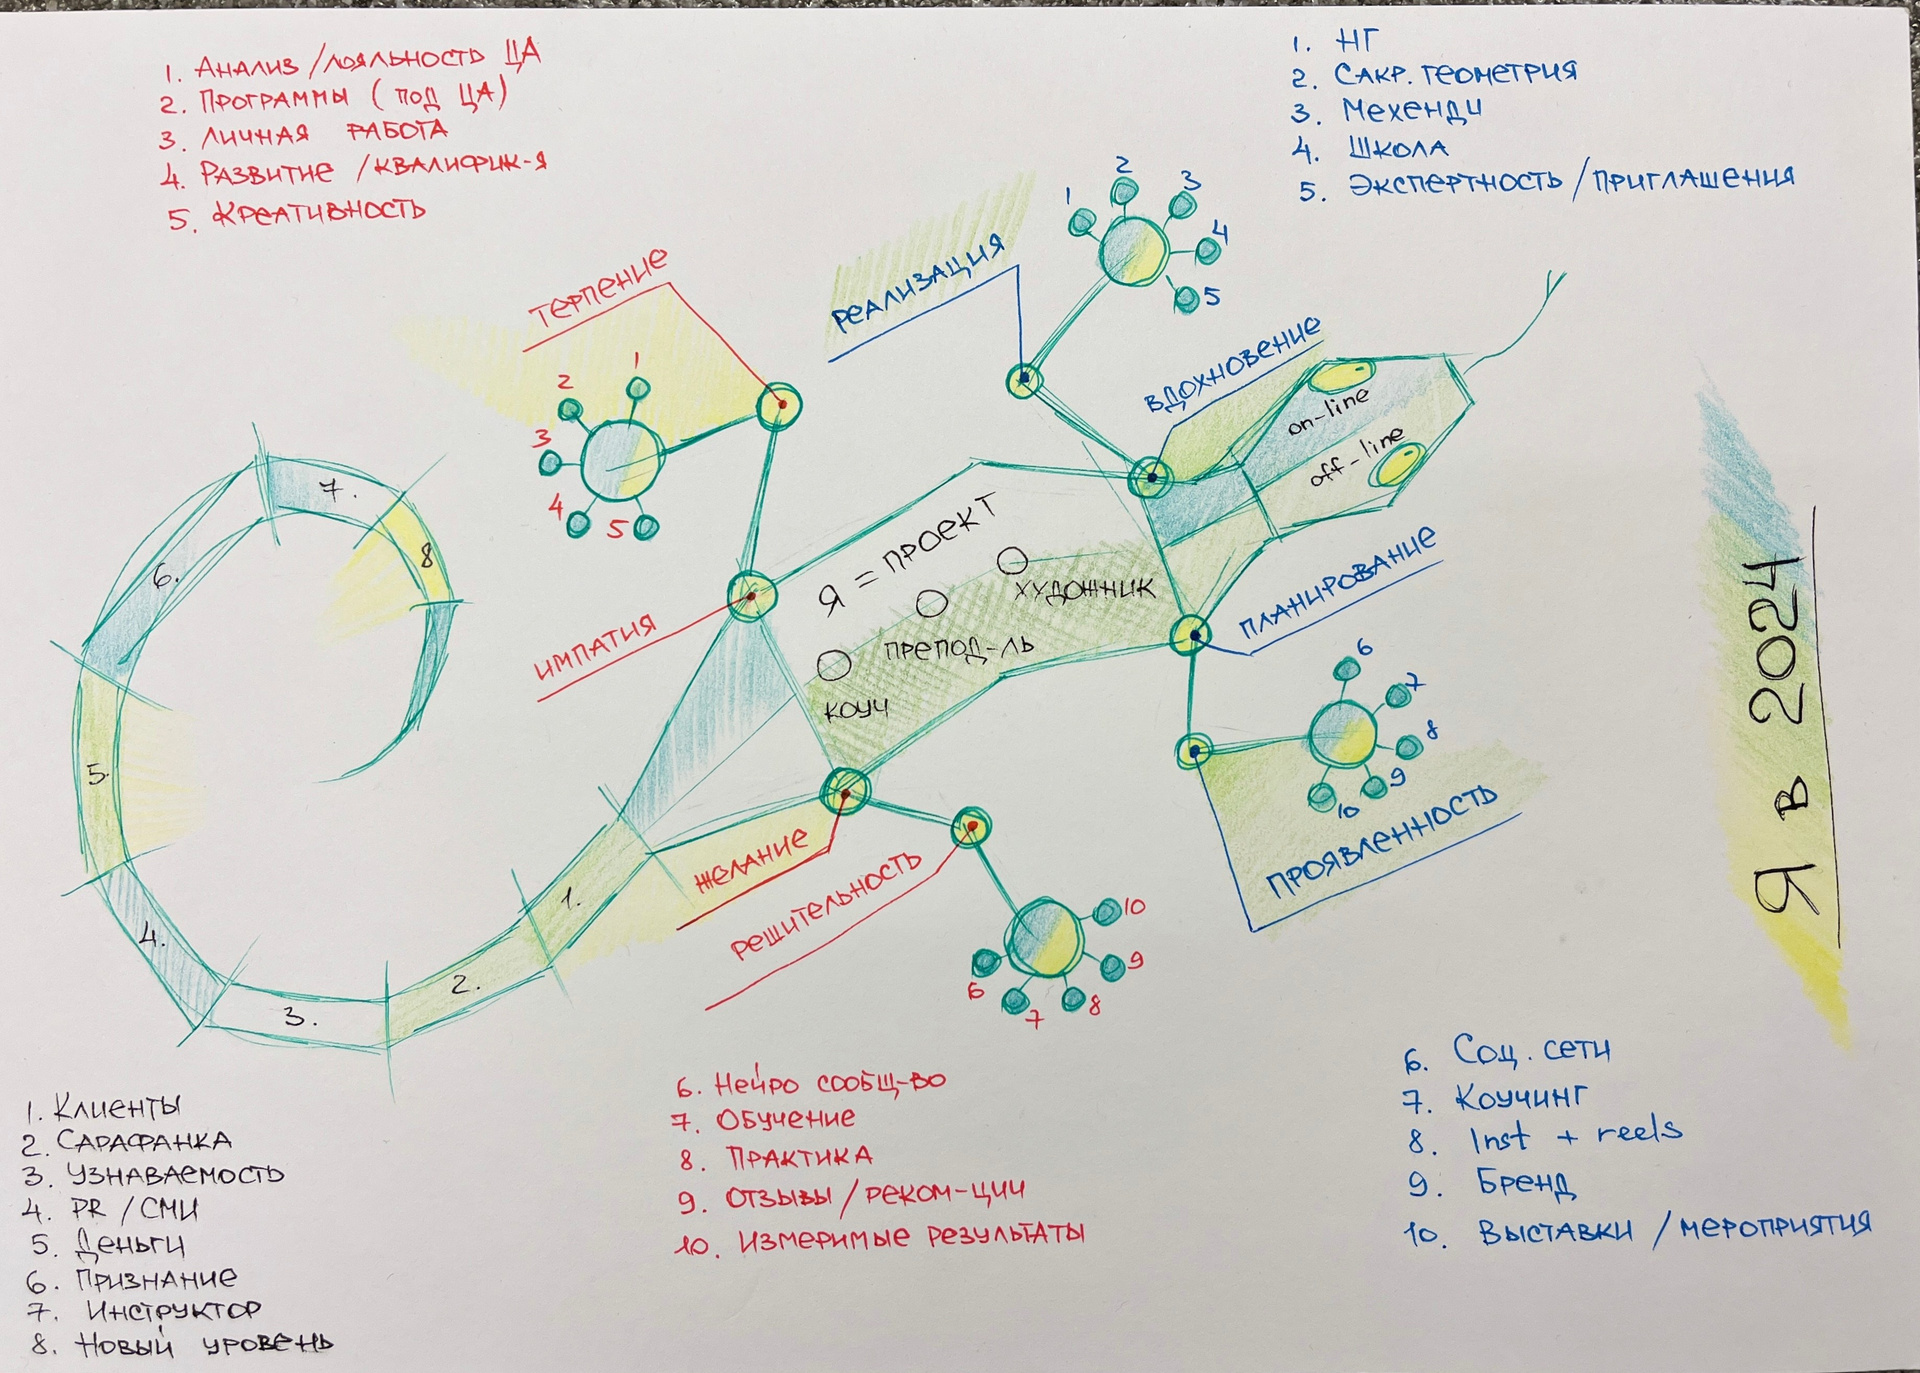 1. Анализ/лояльность ЦА
2. Программы (под ЦА)
3. Личная работа
4. Развитие/квалифик-я
5. Креативность
1. НГ
2. Сакр. геометрия
3. Мехенди
4. Школа
5. Экспертность/приглашения
терпение
1
2
3
4
5
реализация
1
2
3
4
5
вдохновение
on-line
off-line
Я = проект
художник
препод-ль
коуч
импатия
планирование
6
7
8
9
10
проявленность
желание
решительность
10
9
8
7
6
1.
2.
3.
4.
5.
6.
7.
8
Я в 2024
1. Клиенты
2. Сарафанка
3. Узнаваемость
4. PR/СМИ
5. Деньги
6. Признание
7. Инструктор
8. Новый уровень
6. Нейро сообщ-во
7. Обучение
8. Практика
9. Отзывы/реком-ции
10. Измеримые результаты
6. Соц. сети
7. Коучинг
8. Inst + reels
9. Бренд
10. Выставки/мероприятия